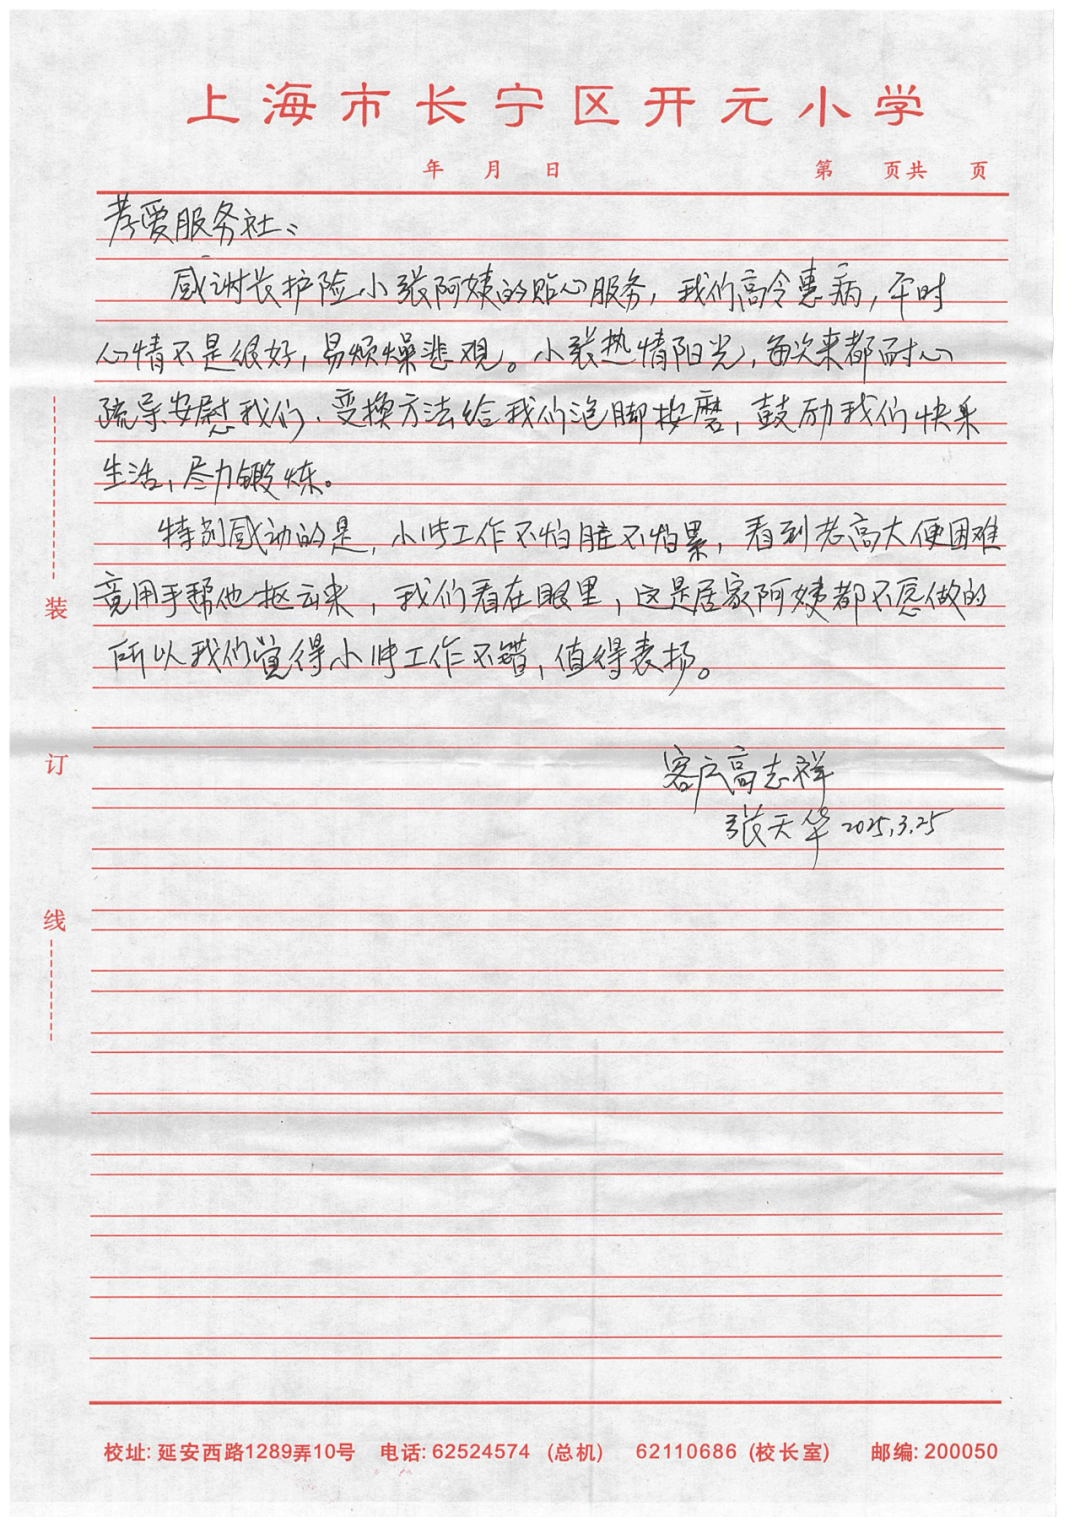 上海市长宁区开元小学
年 月 日 第 页共 页
孝爱服务社:
感谢长护险小张阿姨的贴心服务，我们高令患病，平时
心情不是很好，易烦燥悲观。小张热情阳光，每次来都耐心
疏导安慰我们、变换方法给我们泡脚按磨，鼓励我们快乐
生活，尽力锻炼。
特别感动的是，小张工作不怕脏不怕累，看到老高大便困难
竟用手帮他抠出来，我们看在眼里，这是居家阿姨都不愿做的
所以我们觉得小张工作不错，值得表扬。
客户高志祥
张天华 2025.3.25
装
订
线
校址: 延安西路1289弄10号 电话: 62524574 (总机) 62110686 (校长室) 邮编: 200050